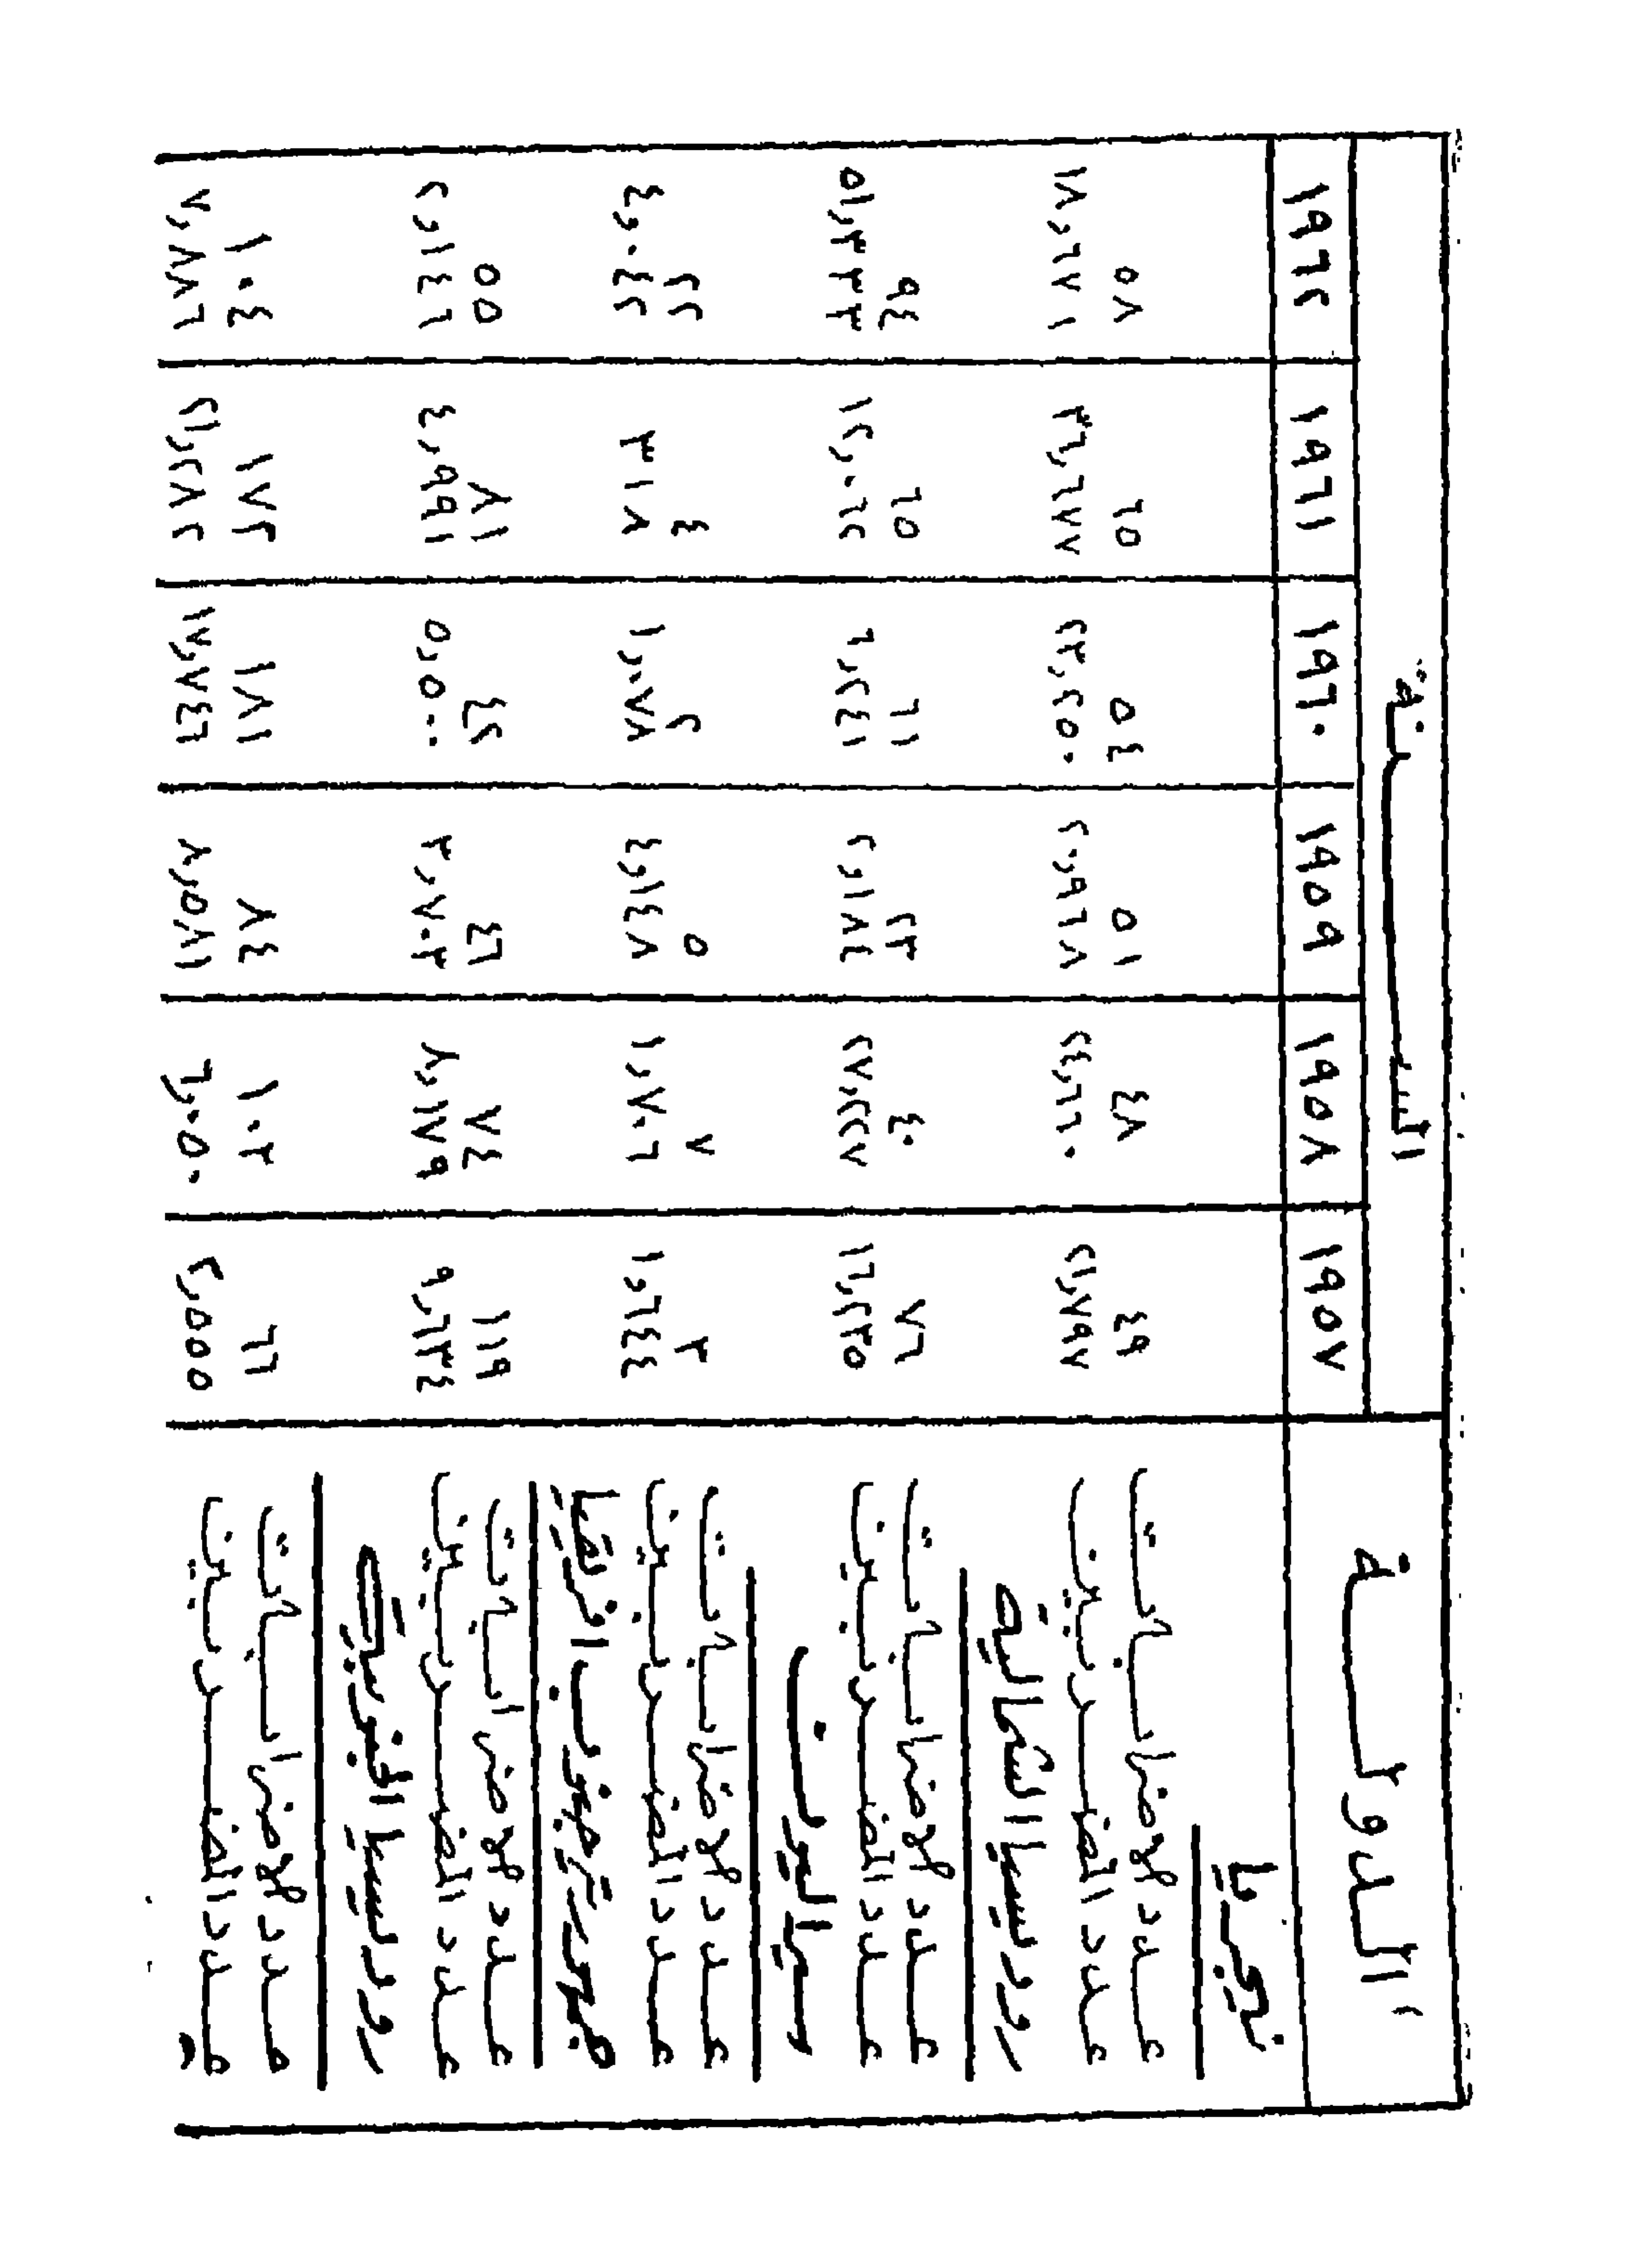 الدولة السنة
١٩٥٧ ١٩٥٨ ١٩٥٩ ١٩٦٠ ١٩٦١ ١٩٦٢
نيجريا
عدد الاضرابات ٤٩ ٤٨ ٥١ ٥٤ ٦٥ ٥٨
عدد المضربين ٢١,٧٩٧ ٢٤,٦٦٠ ٢٠,٩٦٨ ٢٣,٢٥٠ ٣٦,٦٧٧ ١٨,٦٧١
روديسيا الشمالية
عدد الاضرابات ٧٦ ٤٠ ٢٣ ٦١ ٦٥ ٩٤
عدد المضربين ١٦,٢٣٥ ٢٧,٢٢٧ ٢,١٨٤ ٦,٢٤١ ١٢,٠٦٢ ٥١,٣٣٣
سيراليون
عدد الاضرابات ٣ ٧ ٥ ٢ ٤ ٢٢
عدد المضربين ١,٦٤٤ ١,٧٠٦ ٤,١٤٨ ٣١٨ ٤,٠٤٢
جمهورية جنوب افريقيا
عدد الاضرابات ١١٩ ٧٤ ٤٦ ٤٢ ٨١ ٥٥
عدد المضربين ٩,٦٣٤ ٨,١٧٩ ٣,٧٠٣ ٥,٥٠٠ ٤,٩٩١ ٢,١٤٦
روديسيا الجنوبية
عدد الاضرابات ٦٦ ١٠٣ ٨٤ ١٨١ ١٨٢ ١٠٤
عدد المضربين ٢,٥٥٥ ٦,٠٥٠ ٨,٥٧١ ١٧,٧٤٦ ٢١,٢٨٢ ٧,٨٨٦